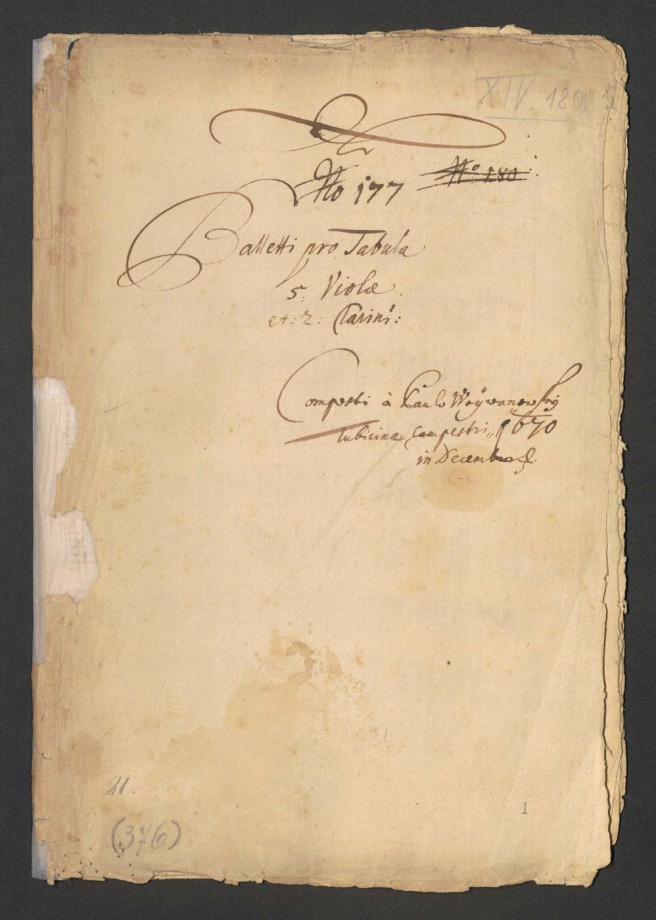 XIV. 180
No 177 No 180
Balletti pro Tabula
5: Violæ
et: 2: Clarini:
Composti à Paulo Weÿwanowskÿ
tubicine Campestri, 1670
in Decemb
11.
(376)
1